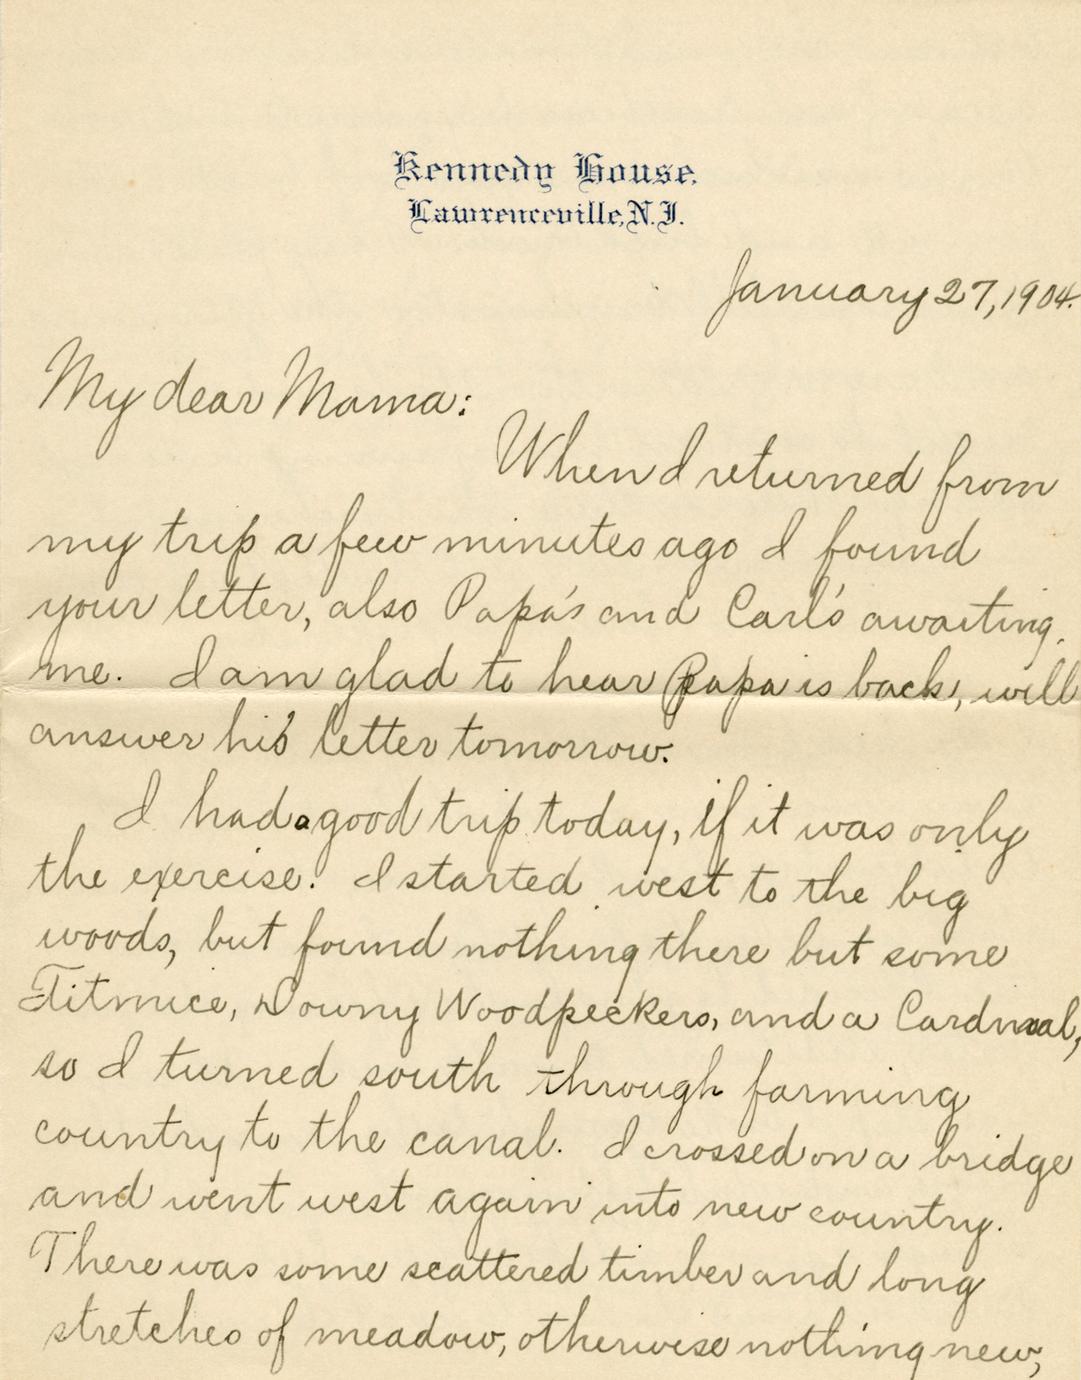 Kennedy House,
Lawrenceville, N.J.
January 27, 1904.
My dear Mama:
When I returned from
my trip a few minutes ago I found
your letter, also Papa's and Carl's awaiting
me. I am glad to hear Papa is back, will
answer his letter tomorrow.
I had a good trip today, if it was only
the exercise. I started west to the big
woods, but found nothing there but some
Titmice, Downy Woodpeckers, and a Cardinal,
so I turned south through farming
country to the canal. I crossed on a bridge
and went west again into new country.
There was some scattered timber and long
stretches of meadow, otherwise nothing new,